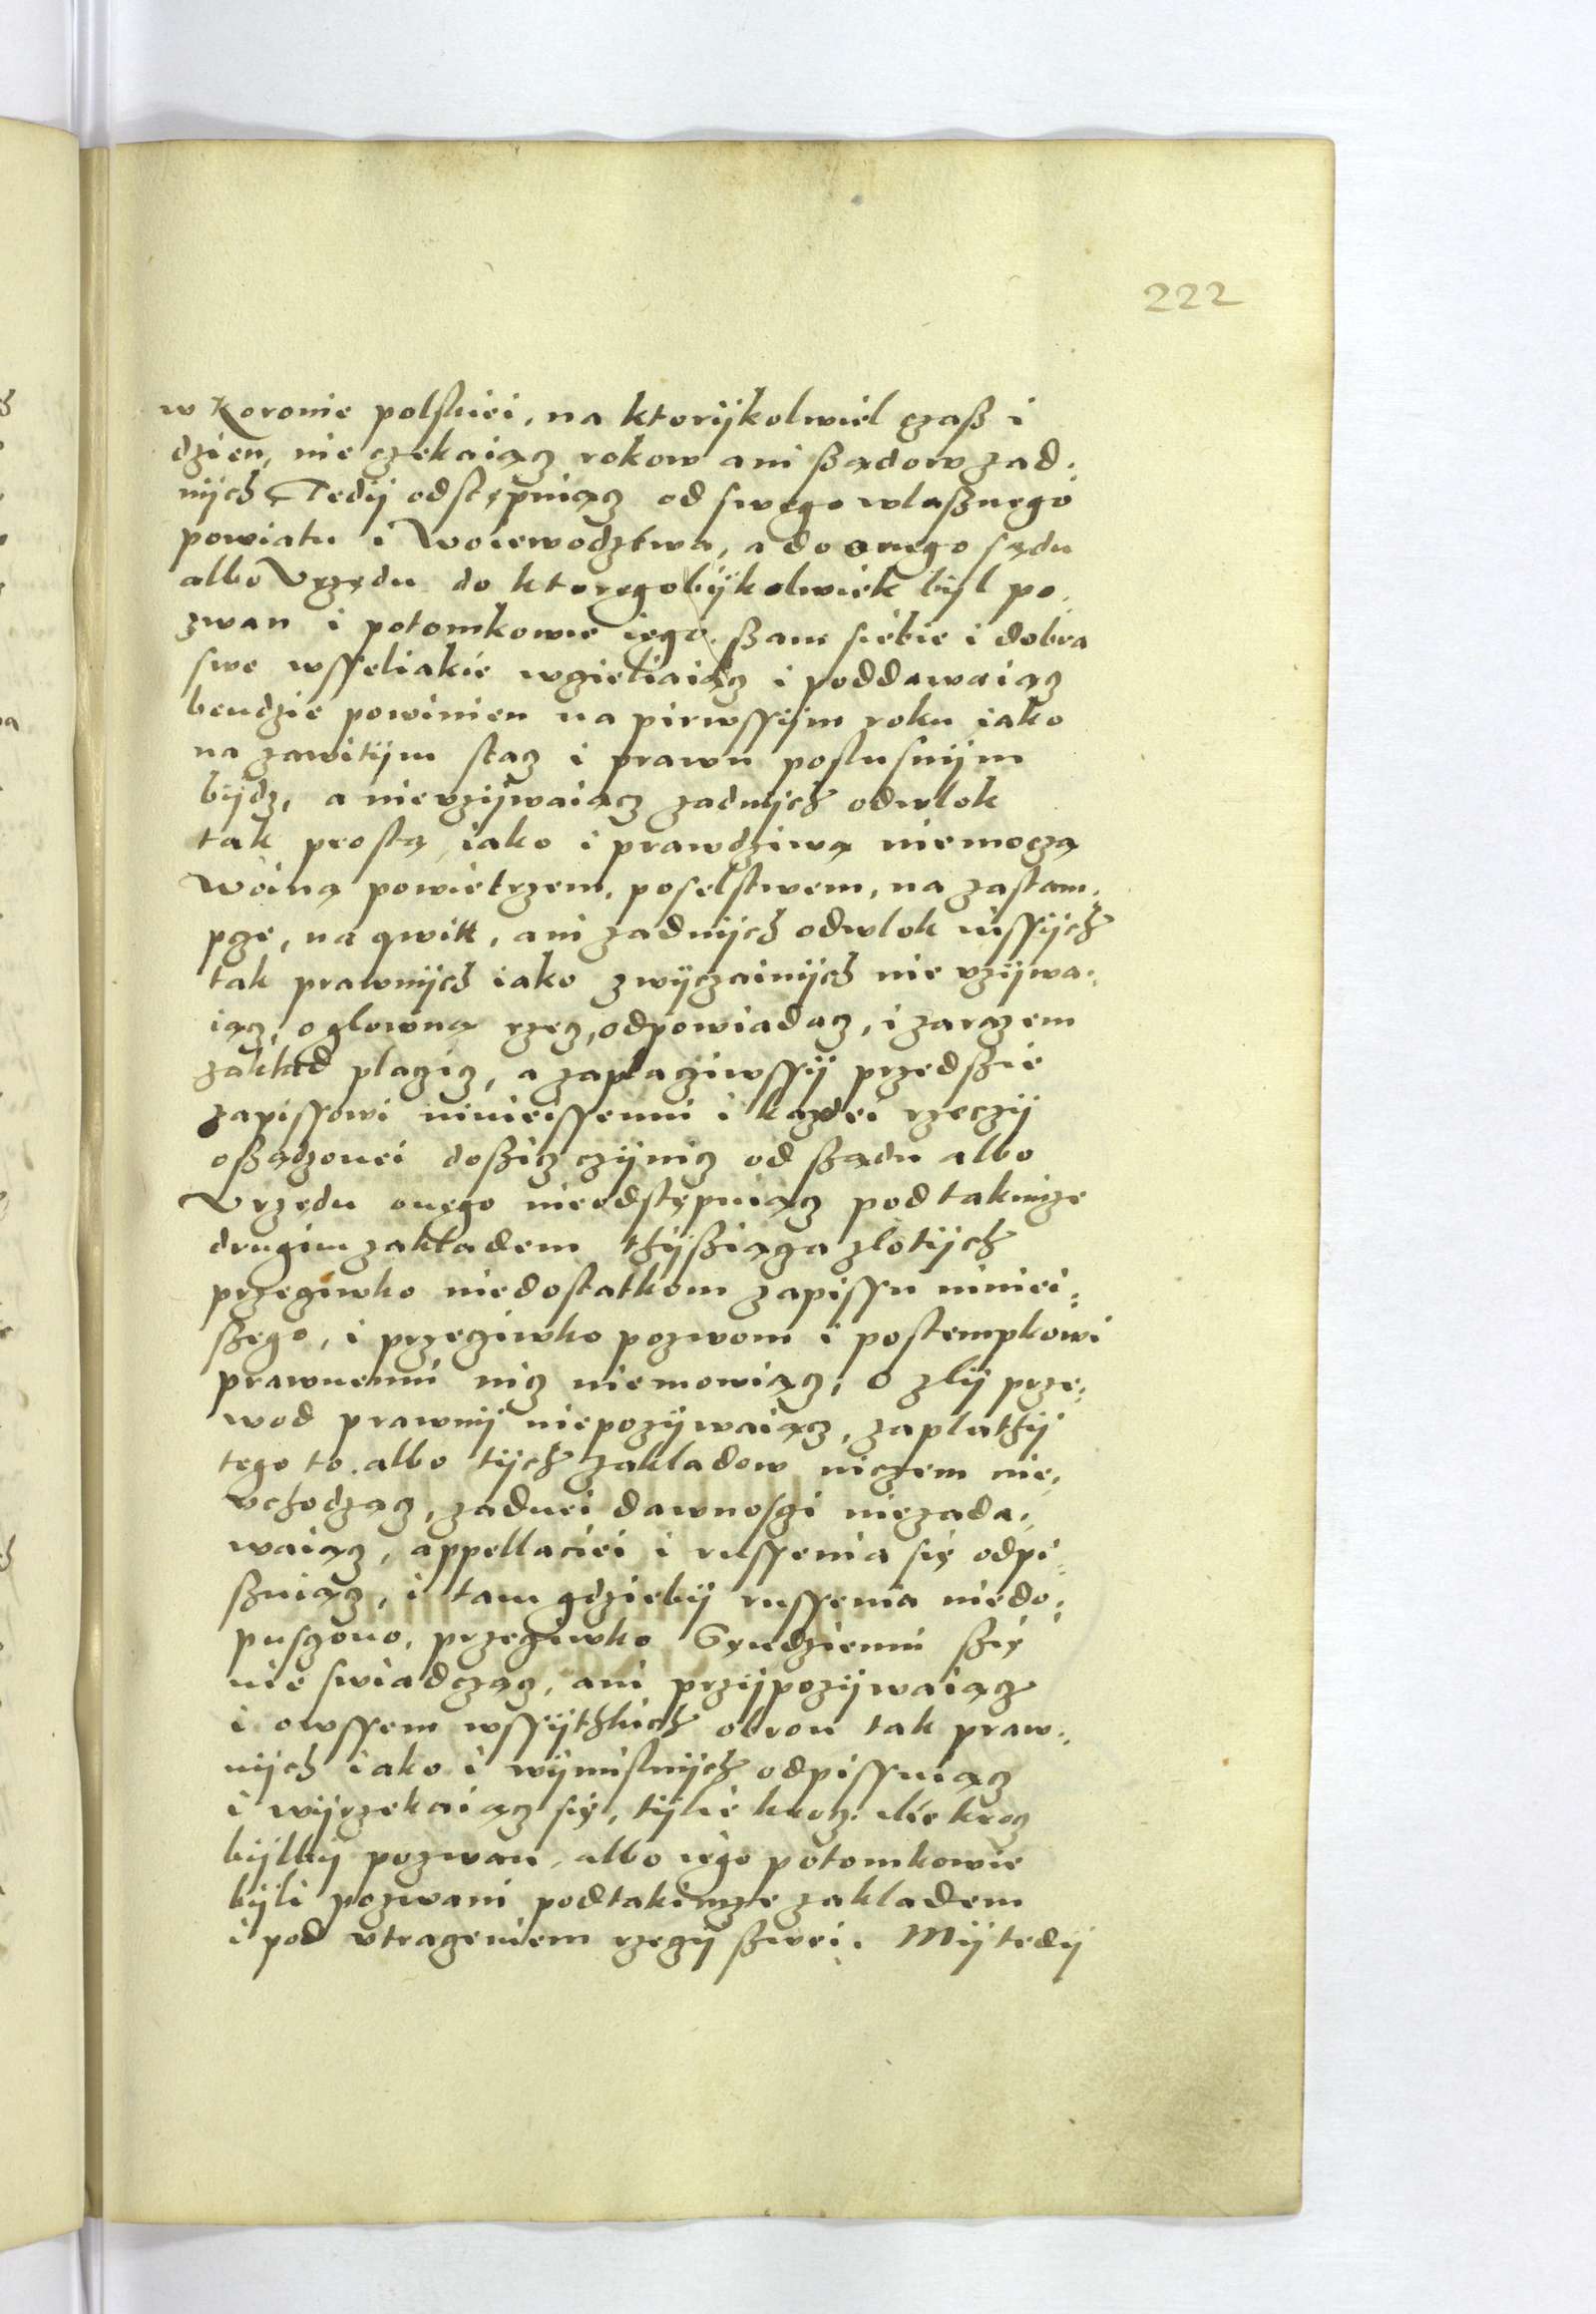 222
w Koronie polskiei, na ktorijkolwiek czaß i
dzien, nie czekaiącz rokow ani ßądow zad:
nijch, Tedij odstępuiącz od swego własznego
powiatu i Woiewodztwa, a do onego sądu
albo Vrzędu do ktoregobijkolwiek bijl po:
zwan i potomkowie iego. ßam siebie i dobra
swe wsseliakie wcieliaiącz i poddawaiącz
bendzie powinien na pirwssijm roku iako
na zawitijm stacz i prawu poslusnijm
bijdz, a nievzijwaiącz zadnijch odwlok
tak prostą iako i prawdziwą niemoczą
Woiną powietrzem, poselstwem, na zastam:
pcze, na qwitt, ani zadnijch odwlok inssijch
tak prawnijch iako zwijczainijch nie vzijwa:
iącz, o glowną rzecz, odpowiadacz, i zarazem
zaklad placzicz, a zaplacziwssij przedßie
zapissowi ninieissemu i kazdei rzeczij
oßądzonei doßicz czijnicz od ßądu albo
Vrzędu onego nieodstępuiącz pod takimze
drugim zakladem thijßiącza zlotijch
przeciwko niedostatkom zapissu niniei:
ßego, i przecziwko pozwom i postempkowi
prawnemu nicz niemowiącz, O zlij prze:
wod prawnij niepozijwaiącz, zaplathij
tego to. albo tijch zakladow niczem nie:
vchodzącz, zadnei dawnosczi niezada:
waiącz, appellaciei i russenia się odpi:
ßuiącz, i tam gdziebij russenia niedo:
pusczono, przecziwko Sendziemu ßię
nie swiadczącz, ani przijpozijwaiącz
i owssem wssijthkich obron tak praw:
nijch iako i wijmislnijch odpissuiącz
i wijrzekaiącz się, tijlie krocz. ilie krocz
bijlbij pozwan, albo iego potomkowie
bijli pozwani podtakimze zakladem
i pod vtraceniem rzeczij ßwei. Mij tedij